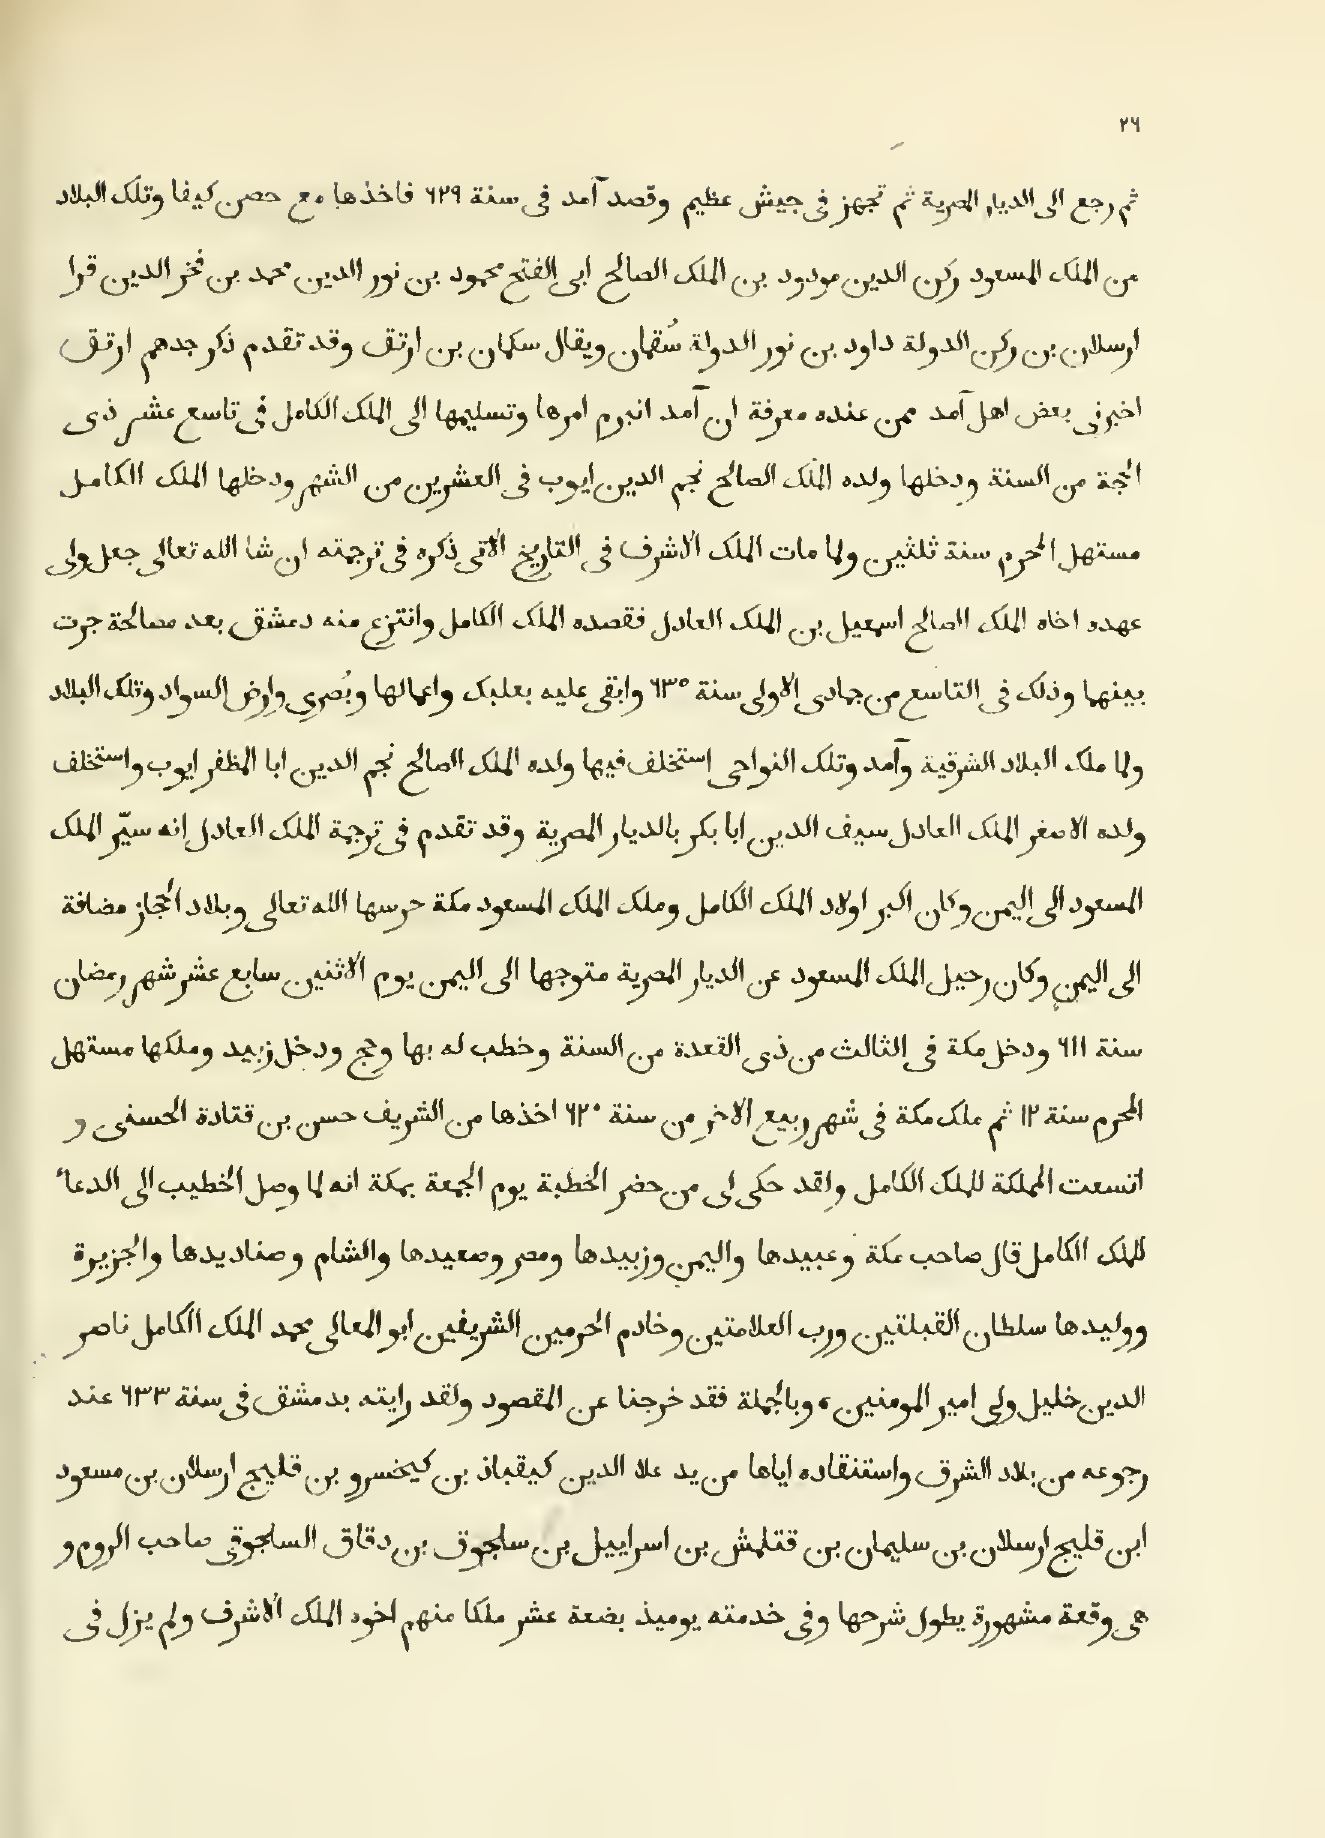 ٢٦
ثم رجع الى الديار المصرية ثم تجهز فى جيش عظيم وقصد آمد فى سنة ٦٢٩ فاخذها مع حصن كيفا وتلك البلاد
من الملك المسعود ركن الدين مودود بن الملك الصالح ابى الفتح محمود بن نور الدين محمد بن فخر الدين قرا
ارسلان بن ركن الدولة داود بن نور الدولة سُقمان ويقال سكمان بن ارتق وقد تقدم ذكر جدهم ارتق
اخبرنى بعض اهل آمد ممن عنده معرفة ان آمد انبرم امرها وتسليمها الى الملك الكامل فى تاسع عشر ذى
الحجة من السنة ودخلها ولده الملك الصالح نجم الدين ايوب فى العشرين من الشهر ودخلها الملك الكامل
مستهل المحرم سنة ثلثين ولما مات الملك الاشرف فى التاريخ الاتى ذكره فى ترجمته ان شا الله تعالى جعل ولى
عهده اخاه الملك الصالح اسمعيل بن الملك العادل فقصده الملك الكامل وانتزع منه دمشق بعد مصالحة جرت
بينهما وذلك فى التاسع من جمادى الاولى سنة ٦٣٥ وابقى عليه بعلبك واعمالها وبُصرى وارض السواد وتلك البلاد
ولما ملك البلاد الشرقية وآمد وتلك النواحى استخلف فيها ولده الملك الصالح نجم الدين ابا المظفر ايوب واستخلف
ولده الاصغر الملك العادل سيف الدين ابا بكر بالديار المصرية وقد تقدم فى ترجمة الملك العادل انه سيّر الملك
المسعود الى اليمن وكان اكبر اولاد الملك الكامل وملك الملك المسعود مكة حرسها الله تعالى وبلاد الحجاز مضافة
الى اليمن وكان رحيل الملك المسعود عن الديار المصرية متوجها الى اليمن يوم الاثنين سابع عشر شهر رمضان
سنة ٦١١ ودخل مكة فى الثالث من ذى القعدة من السنة وخطب له بها وحج ودخل زبيد وملكها مستهل
المحرم سنة ١٢ ثم ملك مكة فى شهر ربيع الاخر من سنة ٦٢٠ اخذها من الشريف حسن بن قتادة الحسنى و
اتسعت المملكة للملك الكامل ولقد حكى لى من حضر الخطبة يوم الجمعة بمكة انه لما وصل الخطيب الى الدعاء
للملك الكامل قال صاحب مكة وعبيدها واليمن وزبيدها ومصر وصعيدها والشام وصناديدها والجزيرة
ووليدها سلطان القبلتين ورب العلامتين وخادم الحرمين الشريفين ابو المعالى محمد الملك الكامل ناصر
الدين خليل ولى امير المومنين ، وبالجملة فقد خرجنا عن المقصود ولقد رايته بدمشق فى سنة ٦٣٣ عند
رجوعه من بلاد الشرق واستنقاده اياها من يد علا الدين كيقباذ بن كيخسرو بن قليج ارسلان بن مسعود
ابن قليج ارسلان بن سليمان بن قتلمش بن اسراييل بن سلجوق بن دقاق السلجوقى صاحب الروم و
هى وقعة مشهورة يطول شرحها وفى خدمته يوميذ بضعة عشر ملكا منهم اخوه الملك الاشرف ولم يزل فى